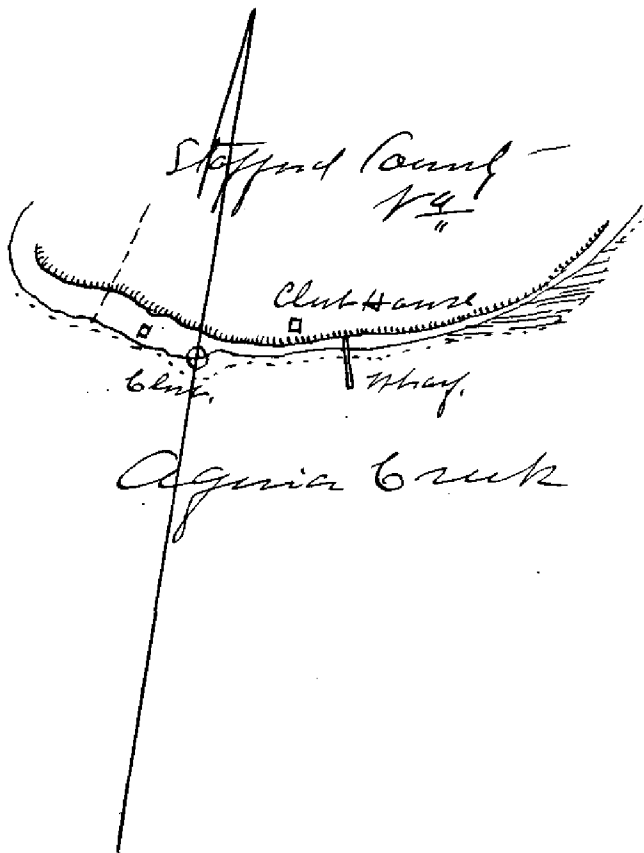 Stafford County
Va
Club House
Wharf.
Aquia Creek